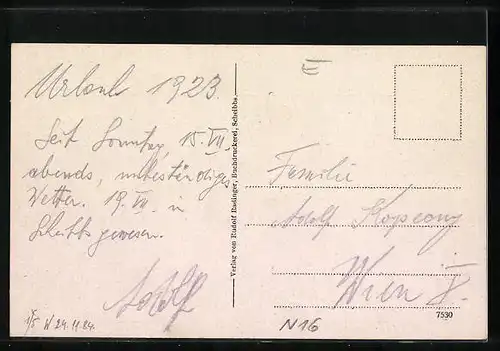 Urlaub 1923.
Seit Sonntag, 15. VII.
abends, unbeständiges
Wetter. 19. VII. in
Scheibbs gewesen.
Adolf
1/5 W 24.11.24.
Verlag von Rudolf Radinger, Buchdruckerei, Scheibbs.
E
Familie
Adolf Kopecny
Wien X.
7530
N16